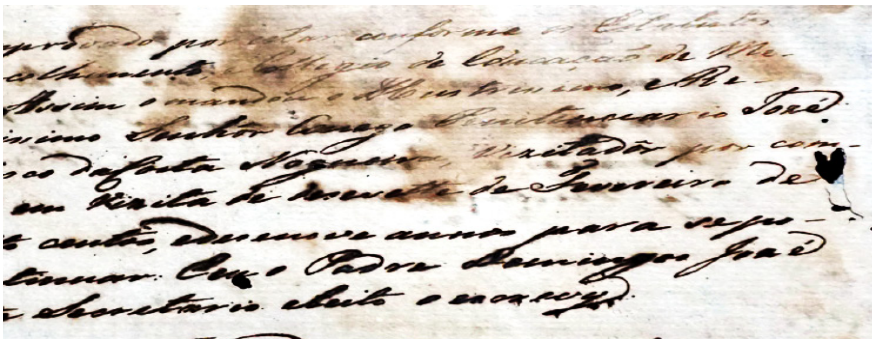 provado por estar conforme os Estatutos
colhimento Collegio de Educação de Me-
Assim o mandou o Illustrissimo, e Re-
issimo Senhor Conego Penitenciario José
sco da Costa Nogueira, Vizitador por com-
em vizita de desesette de Fevereiro de
to centos, edesenove annos para se po-
tinuar. E eu o Padre Domingos José
Secretario eleito o escrevy